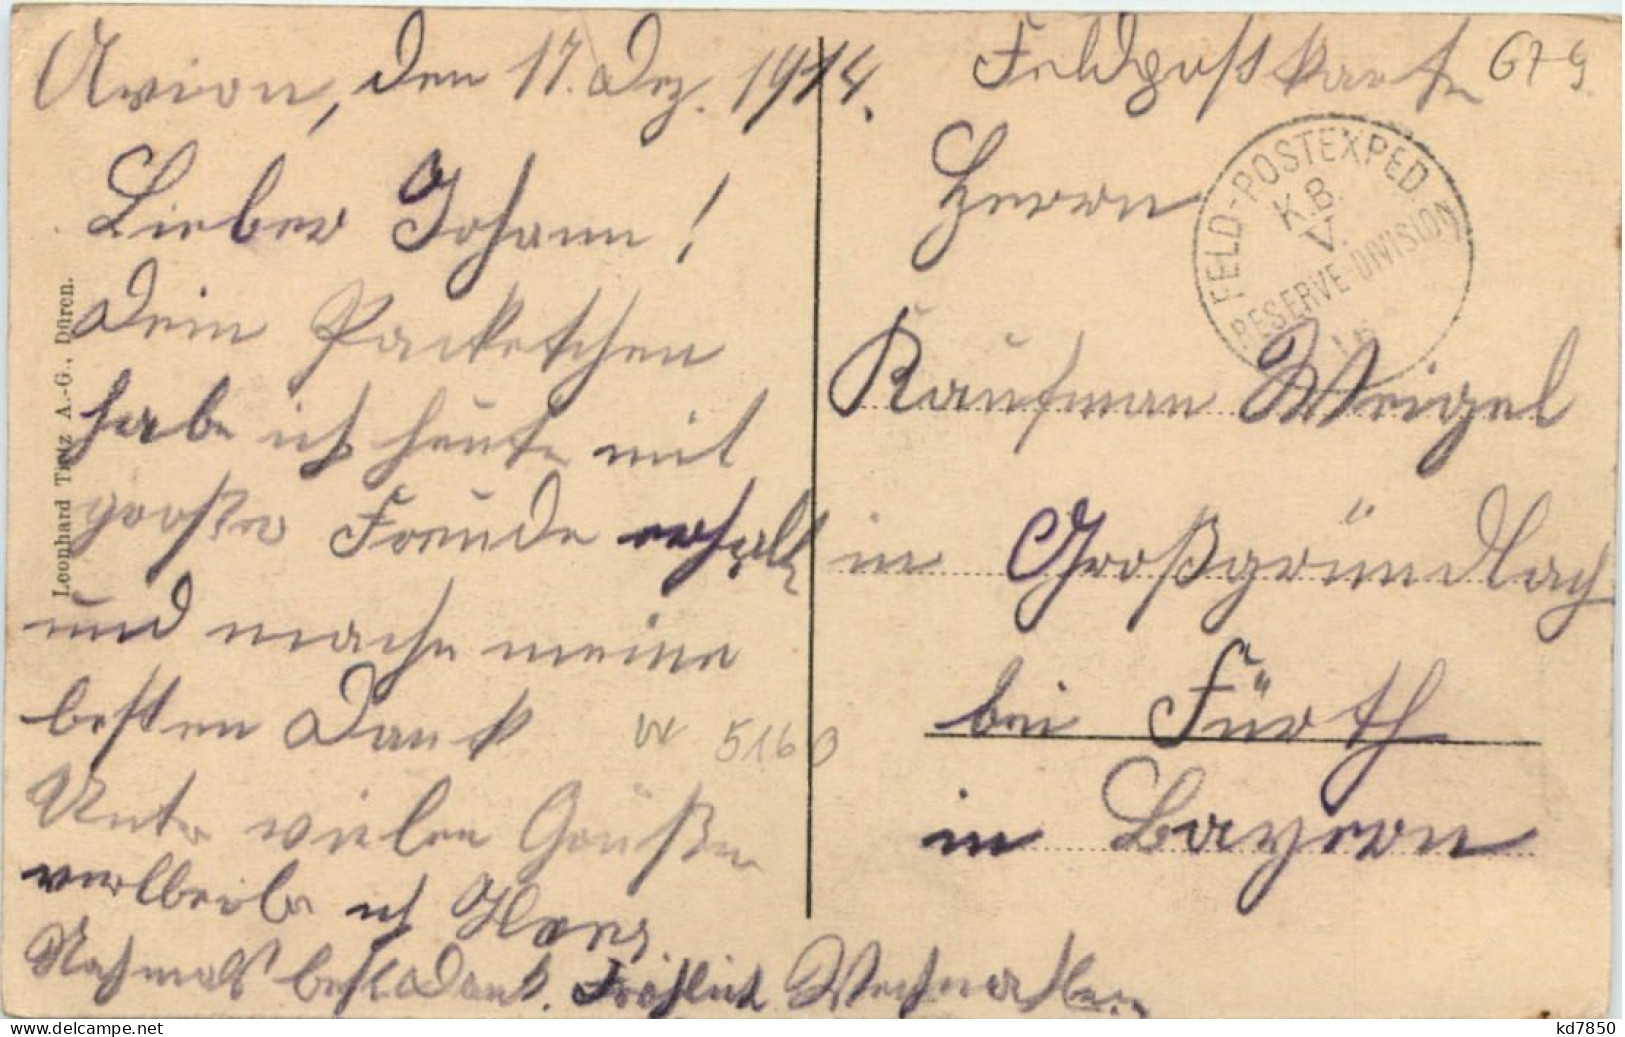 Avion, den 17. Dez. 1914.
Lieber Johann!
Dein Packetchen
habe ich heute mit
großer Freude erhalt
und mache meine
besten Dank
Unter vielen Grüßen
verbleibe ich
Nochmals besten Dank. Fröhlich Weihnachten
W 5160
Leonhard Tietz A.-G., Düren.
Feldpostkarte
679
Herrn
Kaufman Weigel
in Großgründlach
bei Fürth
in Bayern
FELD-POSTEXPED.
K.B.
V.
RESERVE-DIVISION
kd7850